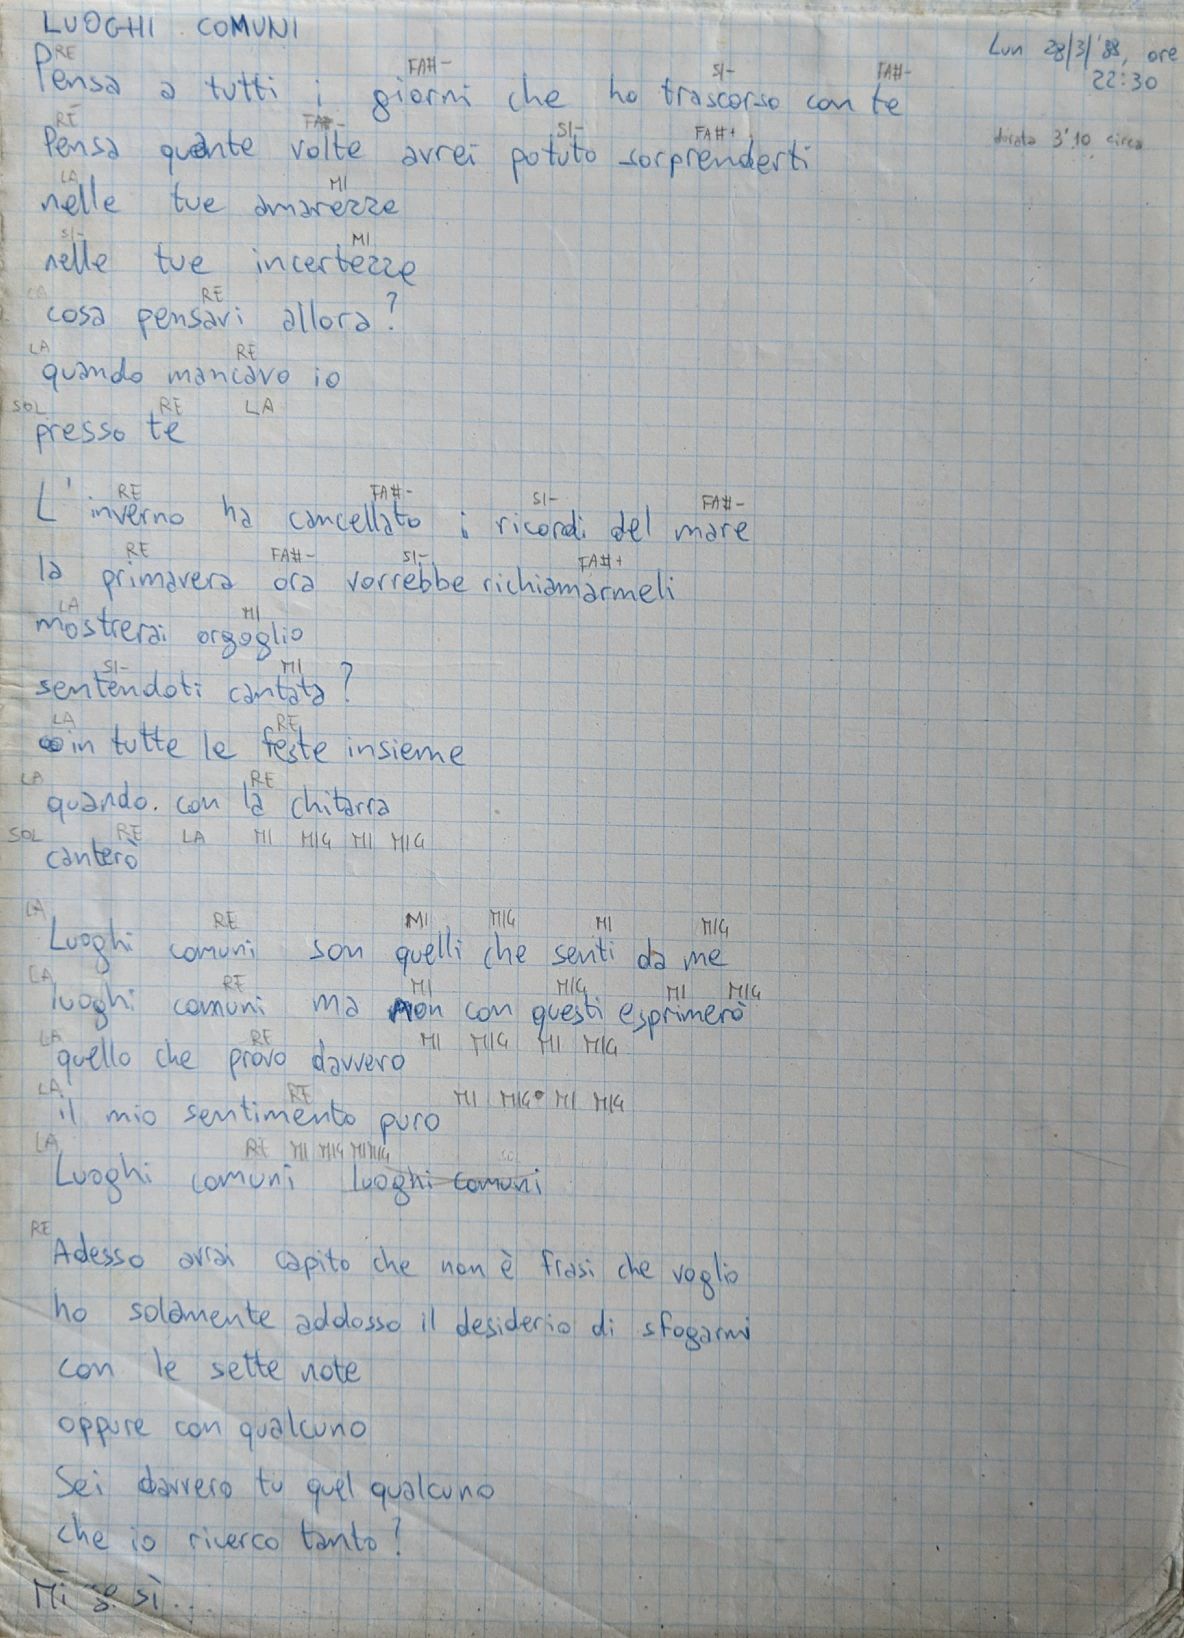 LUOGHI COMUNI
Lun 28/3/'88, ore
22:30
durata 3'10 circa
RE FA#- SI- FA#-
Pensa a tutti i giorni che ho trascorso con te
RE FA#- SI- FA#+
Pensa quante volte avrei potuto sorprenderti
LA MI
nelle tue amarezze
SI- MI
nelle tue incertezze
LA RE
cosa pensavi allora?
LA RE
quando mancavo io
SOL RE LA
presso te
RE FA#- SI- FA#-
L'inverno ha cancellato i ricordi del mare
RE FA#- SI- FA#+
la primavera ora vorrebbe richiamarmeli
LA MI
mostrerai orgoglio
SI- MI
sentendoti cantata?
LA RE
in tutte le feste insieme
LA RE
quando. con la chitarra
SOL RE LA MI MI4 MI MI4
canterò
LA RE MI MI4 MI MI4
Luoghi comuni son quelli che senti da me
LA RE MI MI4 MI MI4
luoghi comuni ma non con questi esprimerò
LA RE MI MI4 MI MI4
quello che provo davvero
LA RE MI MI4 MI MI4
il mio sentimento puro
LA RE MI MI4 MI MI4
Luoghi comuni luoghi comuni
RE
Adesso avrai capito che non è frasi che voglio
ho solamente addosso il desiderio di sfogarmi
con le sette note
oppure con qualcuno
Sei davvero tu quel qualcuno
che io ricerco tanto?
sì...